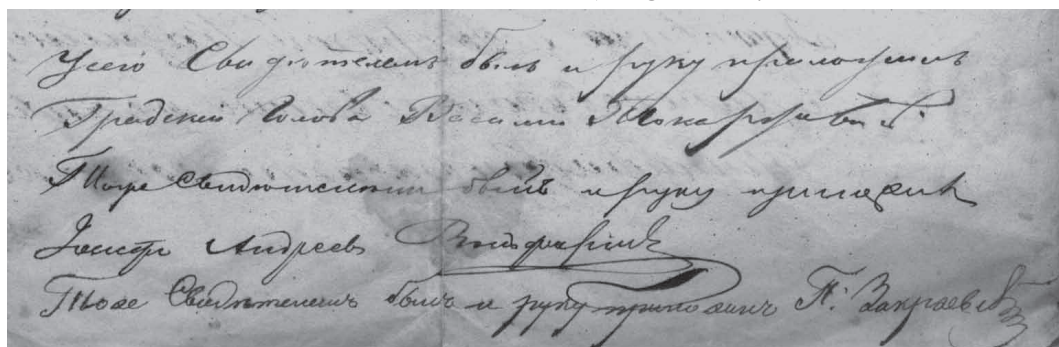 Усего Свидѣтелемъ былъ и руку приложилъ
Градскій Голова Василій
Тоже свидѣтелемъ былъ и руку приложилъ
Іосифъ Андреевъ
Тоже Свидѣтелемъ былъ и руку приложилъ П. Закраевскій